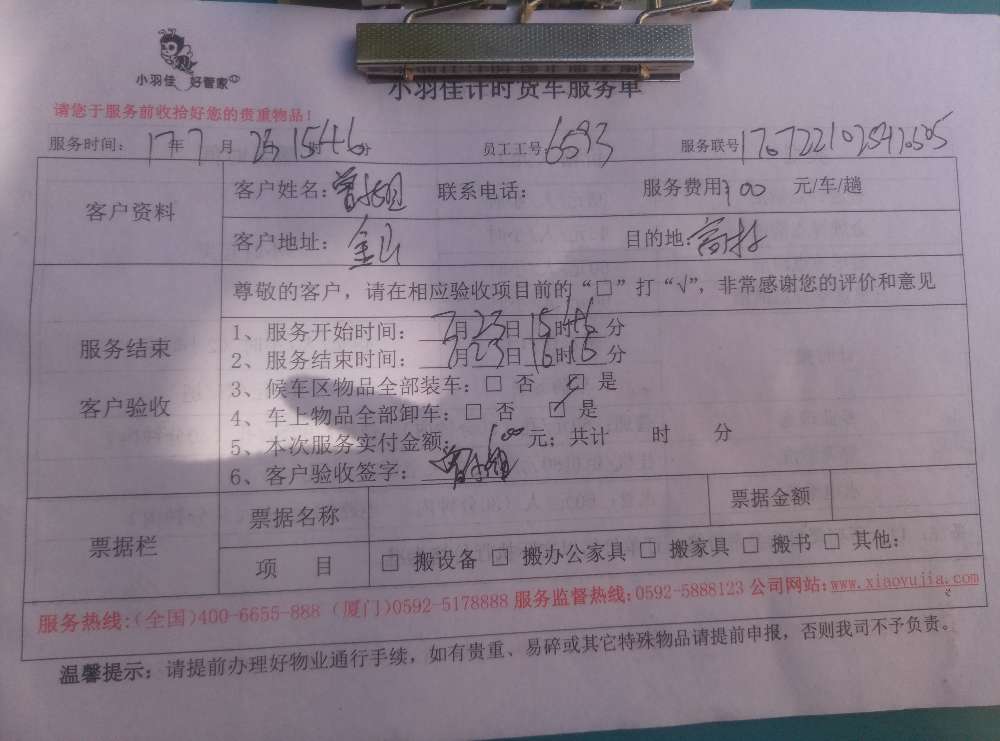 小羽佳 好管家
小羽佳计时货车服务单
请您于服务前收拾好您的贵重物品！
服务时间： 17年7月23 15时46分 员工工号 6593 服务联号
客户资料
客户姓名：曾小姐 联系电话： 服务费用 元/车/趟
客户地址：金山 目的地：
尊敬的客户，请在相应验收项目前的“□”打“√”，非常感谢您的评价和意见
服务结束
客户验收
1、服务开始时间：7月23日15时46分
2、服务结束时间：7月23日16时16分
3、候车区物品全部装车：□ 否 ☑ 是
4、车上物品全部卸车：□ 否 ☑ 是
5、本次服务实付金额： 元；共计 时 分
6、客户验收签字：曾小姐
票据栏
票据名称 票据金额
项 目 □ 搬设备 □ 搬办公家具 □ 搬家具 □ 搬书 □ 其他：
服务热线：(全国)400-6655-888 (厦门)0592-5178888 服务监督热线：0592-5888123 公司网站：www.xiaoyujia.com
温馨提示：请提前办理好物业通行手续，如有贵重、易碎或其它特殊物品请提前申报，否则我司不予负责。